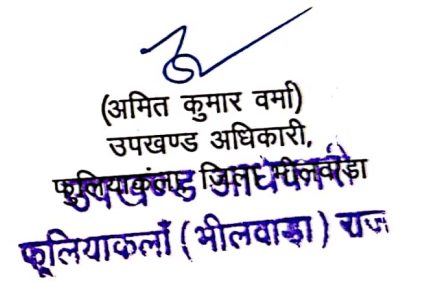 (अमित कुमार वर्मा)
उपखण्ड अधिकारी,
फुलियाकंला, जिला भीलवाड़ा
उपखण्ड अधिकारी
फूलियाकलाँ (भीलवाड़ा) राज